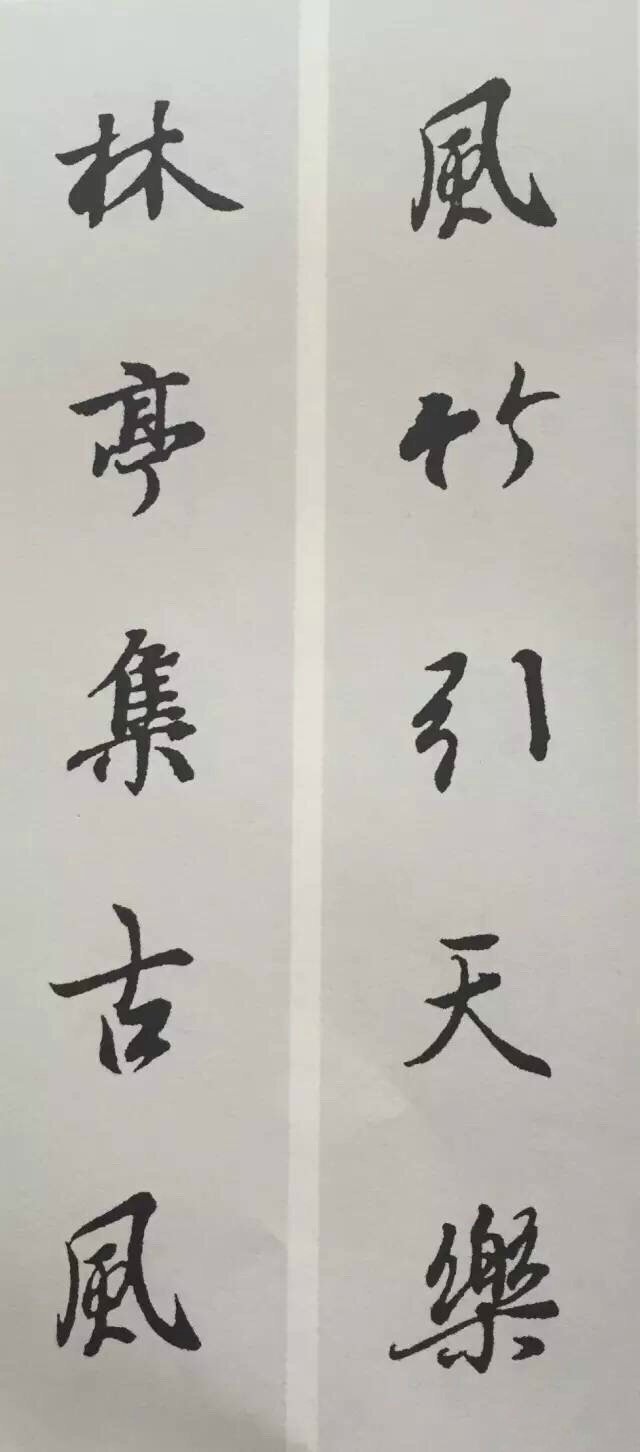 風竹引天樂
林亭集古風